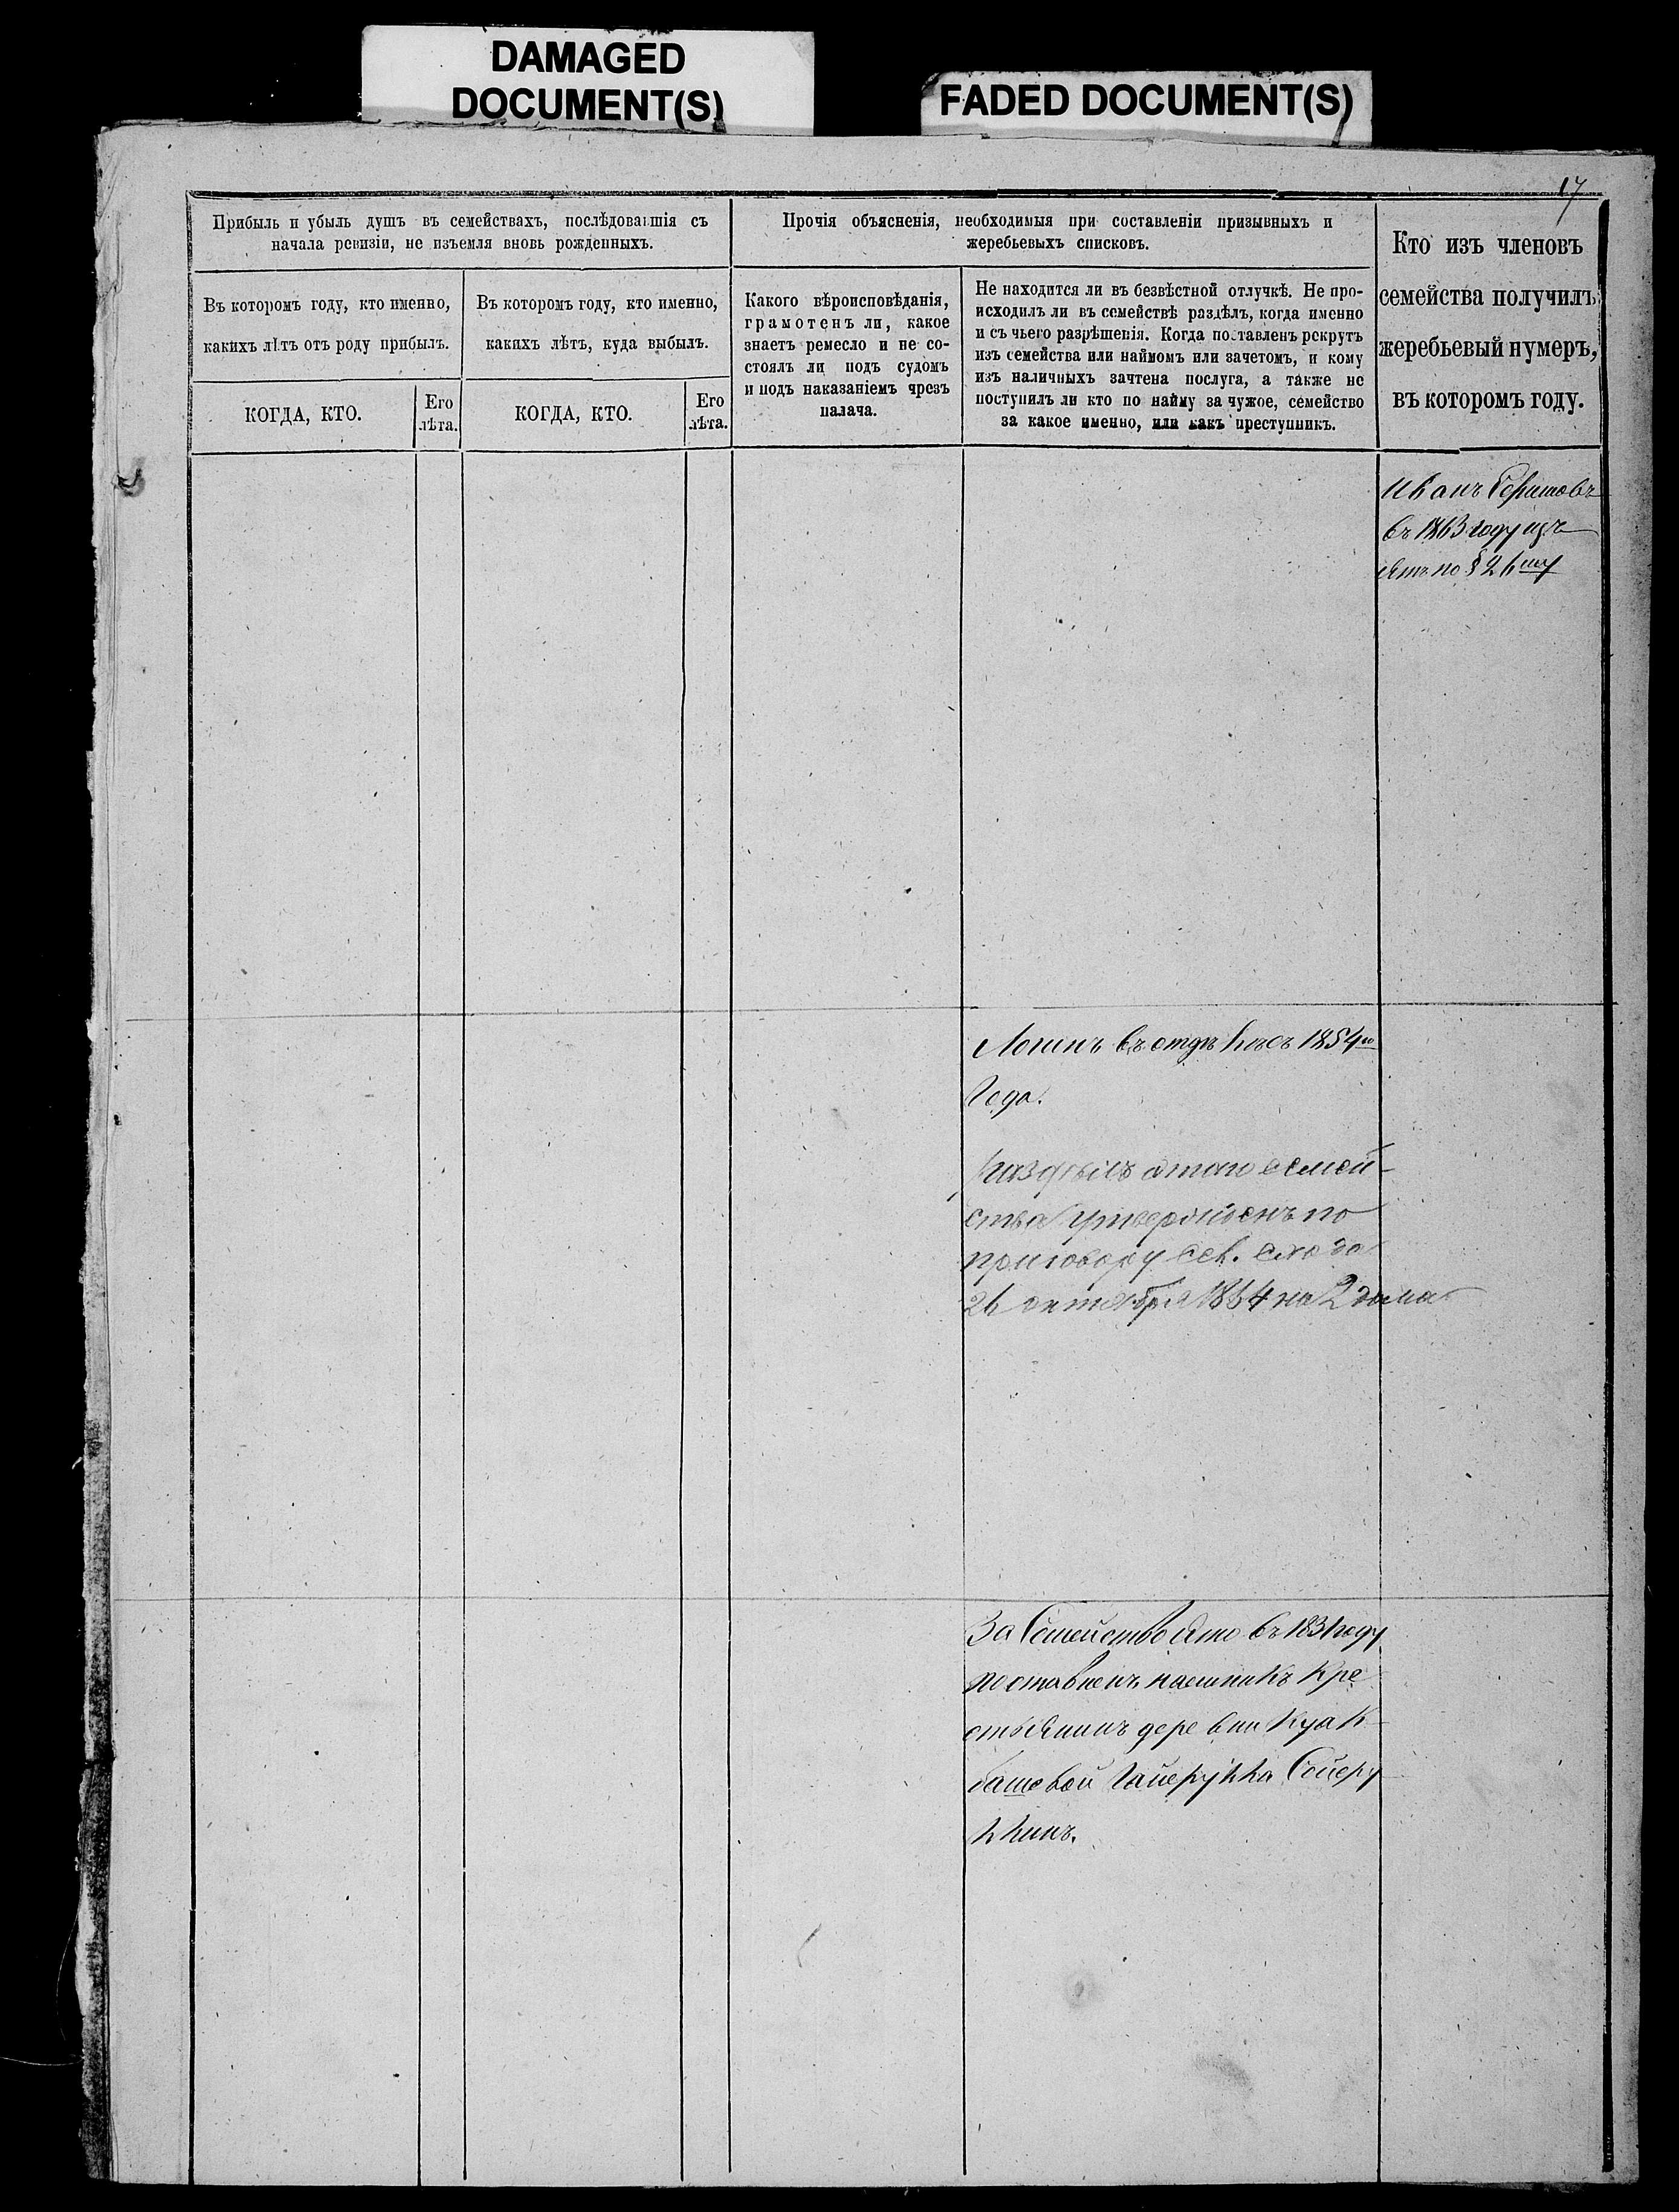 DAMAGED
DOCUMENT(S)
FADED DOCUMENT(S)
17
Прибыль и убыль душъ въ семействахъ, послѣдовавшія съ
начала ревизіи, не изъемля вновь рожденныхъ.
Прочія объясненія, необходимыя при составленіи призывныхъ и
жеребьевыхъ списковъ.
Кто изъ членовъ
семейства получилъ
жеребьевый нумеръ,
въ которомъ году.
Въ которомъ году, кто именно,
какихъ лѣтъ отъ роду прибылъ.
Въ которомъ году, кто именно,
какихъ лѣтъ, куда выбылъ.
Какого вѣроисповѣданія,
грамотенъ ли, какое
знаетъ ремесло и не со-
стоялъ ли подъ судомъ
и подъ наказаніемъ чрезъ
палача.
Не находится ли въ безвѣстной отлучкѣ. Не про-
исходилъ ли въ семействѣ раздѣлъ, когда именно
и съ чьего разрѣшенія. Когда поставленъ рекрутъ
изъ семейства или наймомъ или зачетомъ, и кому
изъ наличныхъ зачтена послуга, а также не
поступилъ ли кто по найму за чужое, семейство
за какое именно, или какъ преступникъ.
КОГДА, КТО.
Его
лѣта.
КОГДА, КТО.
Его
лѣта.
Иванъ
въ 1863 году изъ
ятъ по § 26му
Логинъ въ отдѣлѣ съ 1854го
Года.
Раздѣлъ этаго семей-
ства утвержденъ по
приговору сел. схода
26 октября 1864 на 2 дома
За Семейство Это въ 1831 году
поставленъ наемникъ Кре
стьянинъ деревни Куак
башевой